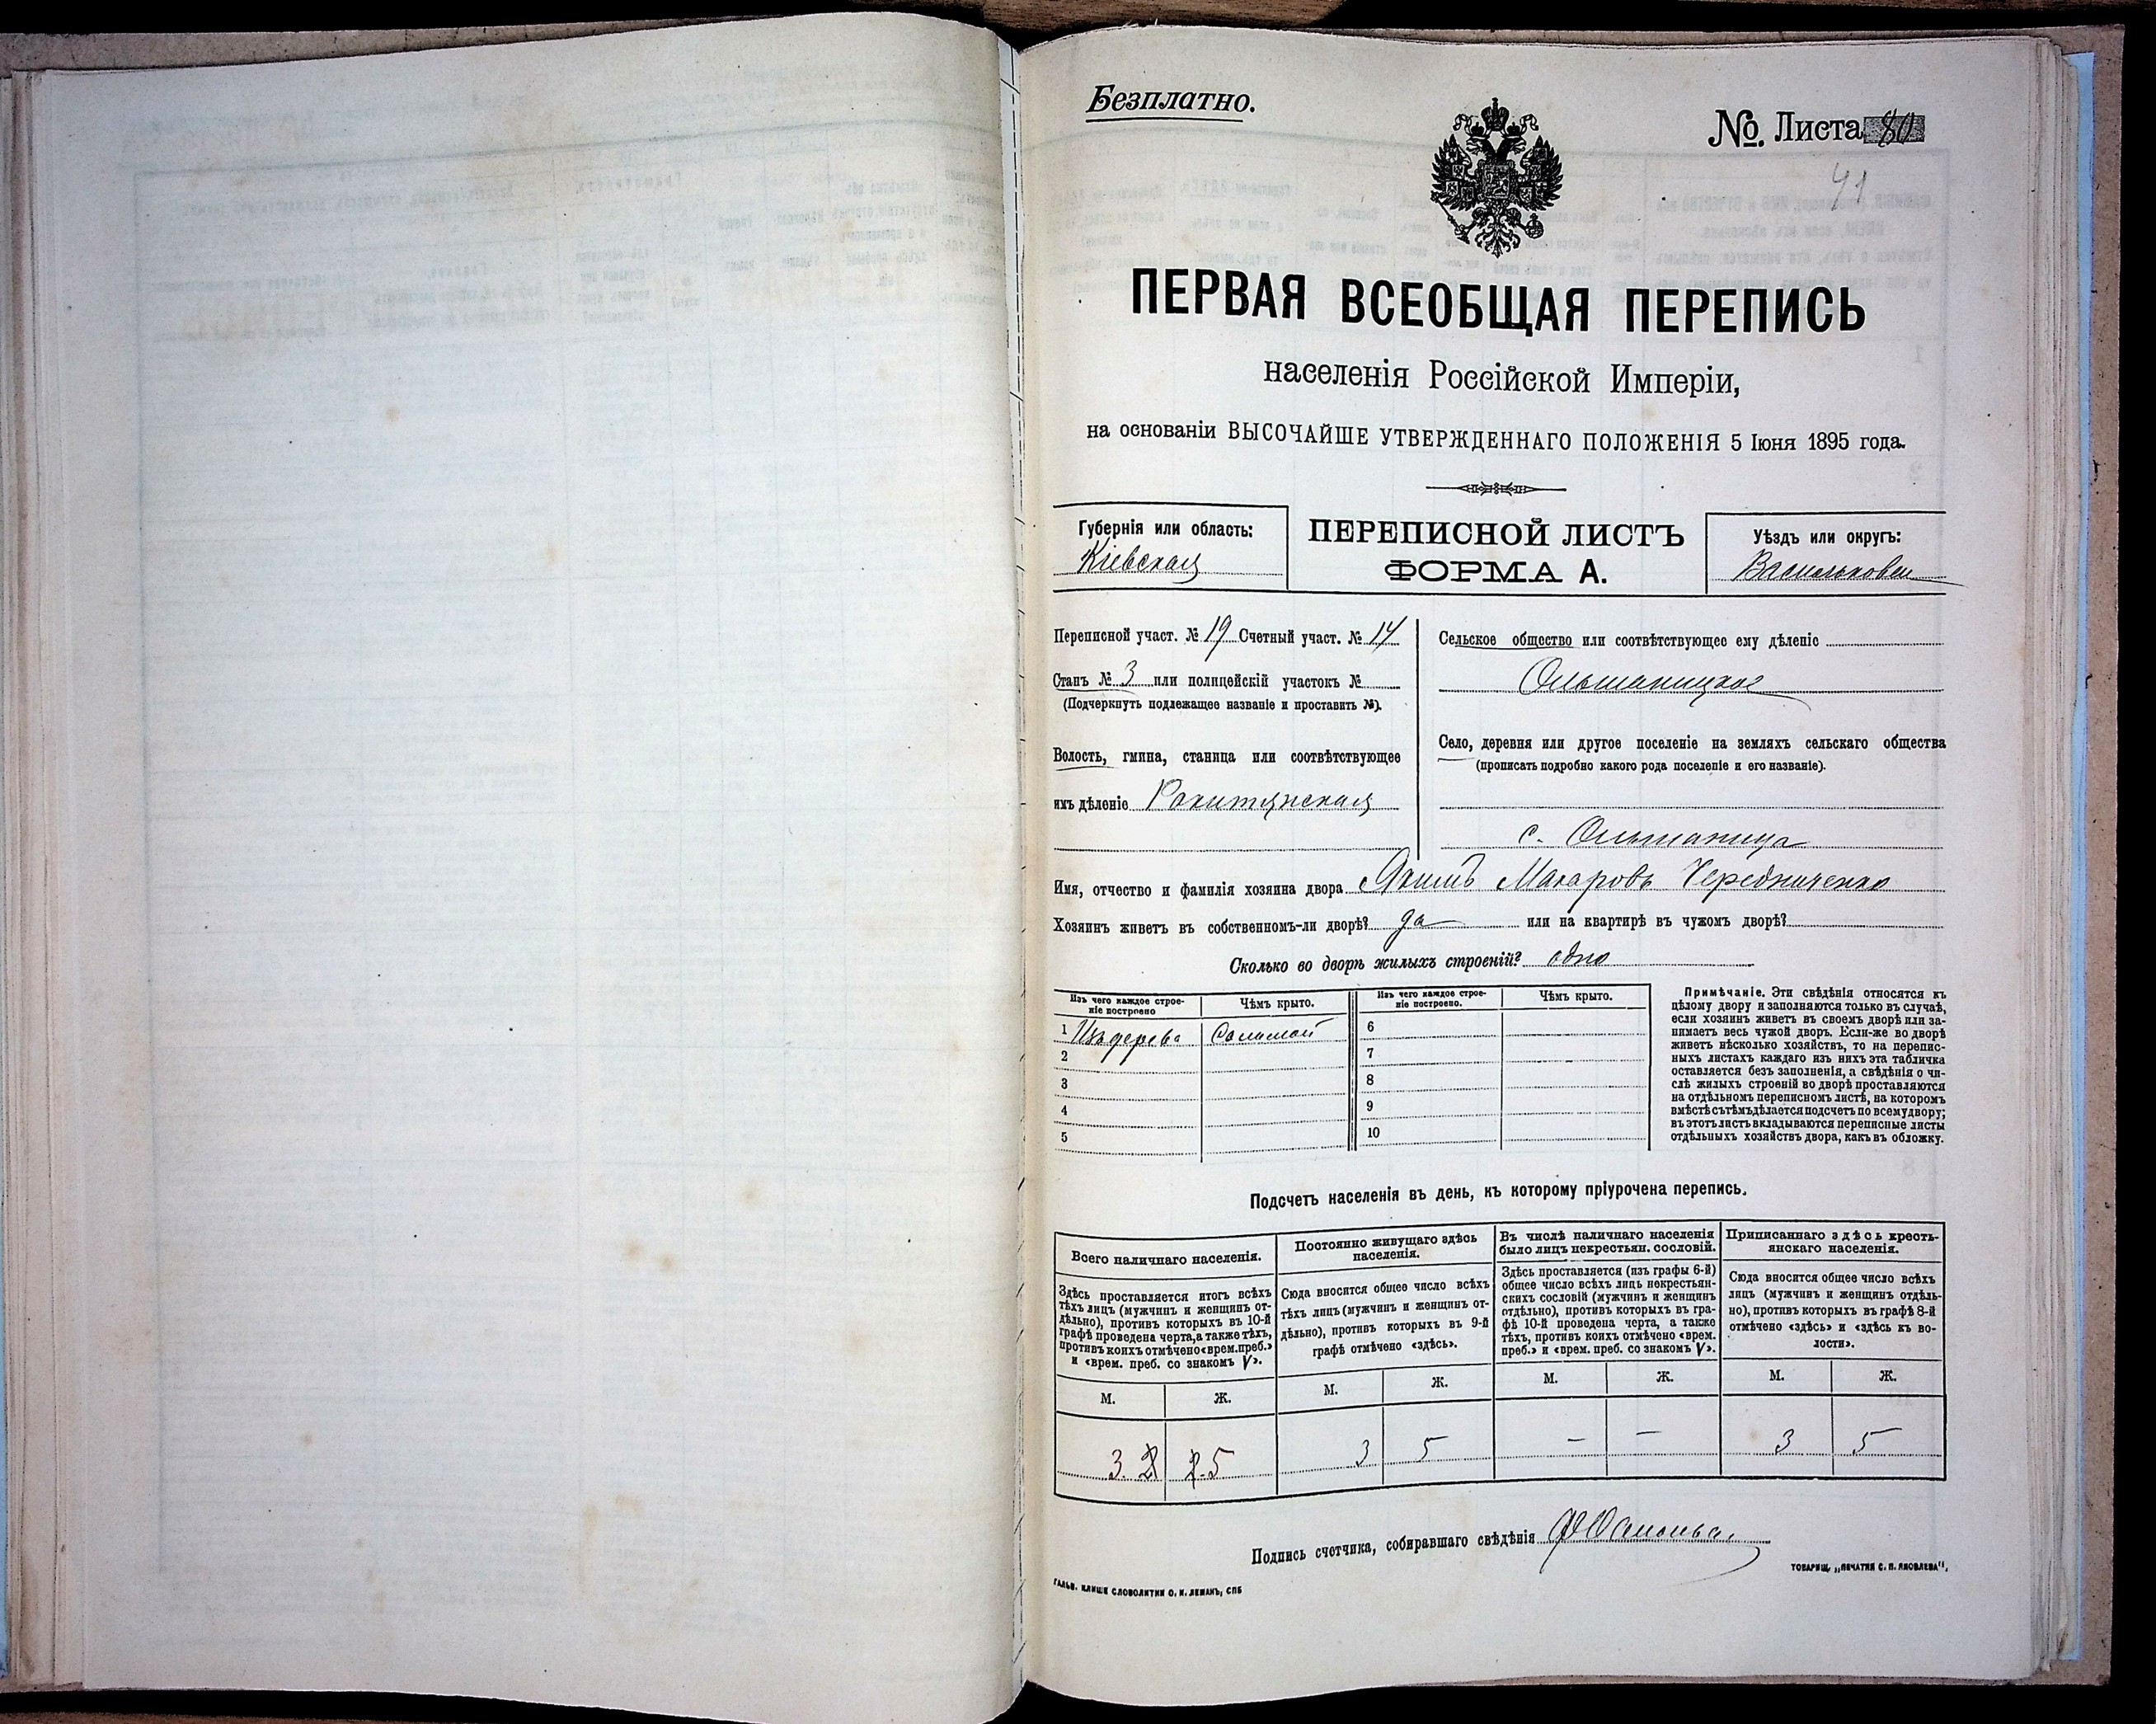 Безплатно.
№ Листа 80
41
ПЕРВАЯ ВСЕОБЩАЯ ПЕРЕПИСЬ
населенія Россійской Имперіи,
на основаніи ВЫСОЧАЙШЕ УТВЕРЖДЕННАГО ПОЛОЖЕНІЯ 5 Іюня 1895 года.
Губернія или область:
Кіевская
ПЕРЕПИСНОЙ ЛИСТЪ
ФОРМА А.
Уѣздъ или округъ:
Васильковск
Переписной участ. № 19 Счетный участ. № 14
Станъ № 3 или полицейскій участокъ №
(Подчеркнуть подлежащее названіе и проставить №).
Волость, гмина, станица или соотвѣтствующее
имъ дѣленіе Ракитянская
Сельское общество или соотвѣтствующее ему дѣленіе
Ольшаницкое
Село, деревня или другое поселеніе на земляхъ сельскаго общества
(прописать подробно какого рода поселеніе и его названіе).
с. Ольшаница
Имя, отчество и фамилія хозяина двора Якимъ Макаровъ Чередниченко
Хозяинъ живетъ въ собственномъ-ли дворѣ? да или на квартирѣ въ чужомъ дворѣ?
Сколько во дворѣ жилыхъ строеній? одно
Изъ чего каждое строе-
ніе построено
Чѣмъ крыто.
Изъ чего каждое строе-
ніе построено.
Чѣмъ крыто.
1 Изъ дерева Соломой
2
3
4
5
6
7
8
9
10
Примѣчаніе. Эти свѣдѣнія относятся къ
цѣлому двору и заполняются только въ случаѣ,
если хозяинъ живетъ въ своемъ дворѣ или за-
нимаетъ весь чужой дворъ. Если-же во дворѣ
живетъ нѣсколько хозяйствъ, то на перепис-
ныхъ листахъ каждаго изъ нихъ эта табличка
оставляется безъ заполненія, а свѣдѣнія о чи-
слѣ жилыхъ строеній во дворѣ проставляются
на отдѣльномъ переписномъ листѣ, на которомъ
вмѣстѣ съ тѣмъ дѣлается подсчетъ по всему двору;
въ этотъ листъ вкладываются переписные листы
отдѣльныхъ хозяйствъ двора, какъ въ обложку.
Подсчетъ населенія въ день, къ которому пріурочена перепись.
Всего наличнаго населенія.
Здѣсь проставляется итогъ всѣхъ
тѣхъ лицъ (мужчинъ и женщинъ от-
дѣльно), противъ которыхъ въ 10-й
графѣ проведена черта, а также тѣхъ,
противъ коихъ отмѣчено «врем. преб.»
и «врем. преб. со знакомъ V».
М. Ж.
3. 2 2. 5
Постоянно живущаго здѣсь
населенія.
Сюда вносится общее число всѣхъ
тѣхъ лицъ (мужчинъ и женщинъ от-
дѣльно), противъ которыхъ въ 9-й
графѣ отмѣчено «здѣсь».
М. Ж.
3 5
Въ числѣ наличнаго населенія
было лицъ некрестьян. сословій.
Здѣсь проставляется (изъ графы 6-й)
общее число всѣхъ лицъ некрестьян-
скихъ сословій (мужчинъ и женщинъ
отдѣльно), противъ которыхъ въ гра-
фѣ 10-й проведена черта, а также
тѣхъ, противъ коихъ отмѣчено «врем.
преб.» и «врем. преб. со знакомъ V».
М. Ж.
– –
Приписаннаго здѣсь кресть-
янскаго населенія.
Сюда вносится общее число всѣхъ
лицъ (мужчинъ и женщинъ отдѣль-
но), противъ которыхъ въ графѣ 8-й
отмѣчено «здѣсь» и «здѣсь къ во-
лости».
М. Ж.
3 5
Подпись счетчика, собиравшаго свѣдѣнія
ГАЛЬВ. КЛИШЕ СЛОВОЛИТНИ О. И. ЛЕМАНЪ, СПБ
ТОВАРИЩ. „ПЕЧАТНЯ С. П. ЯКОВЛЕВА",